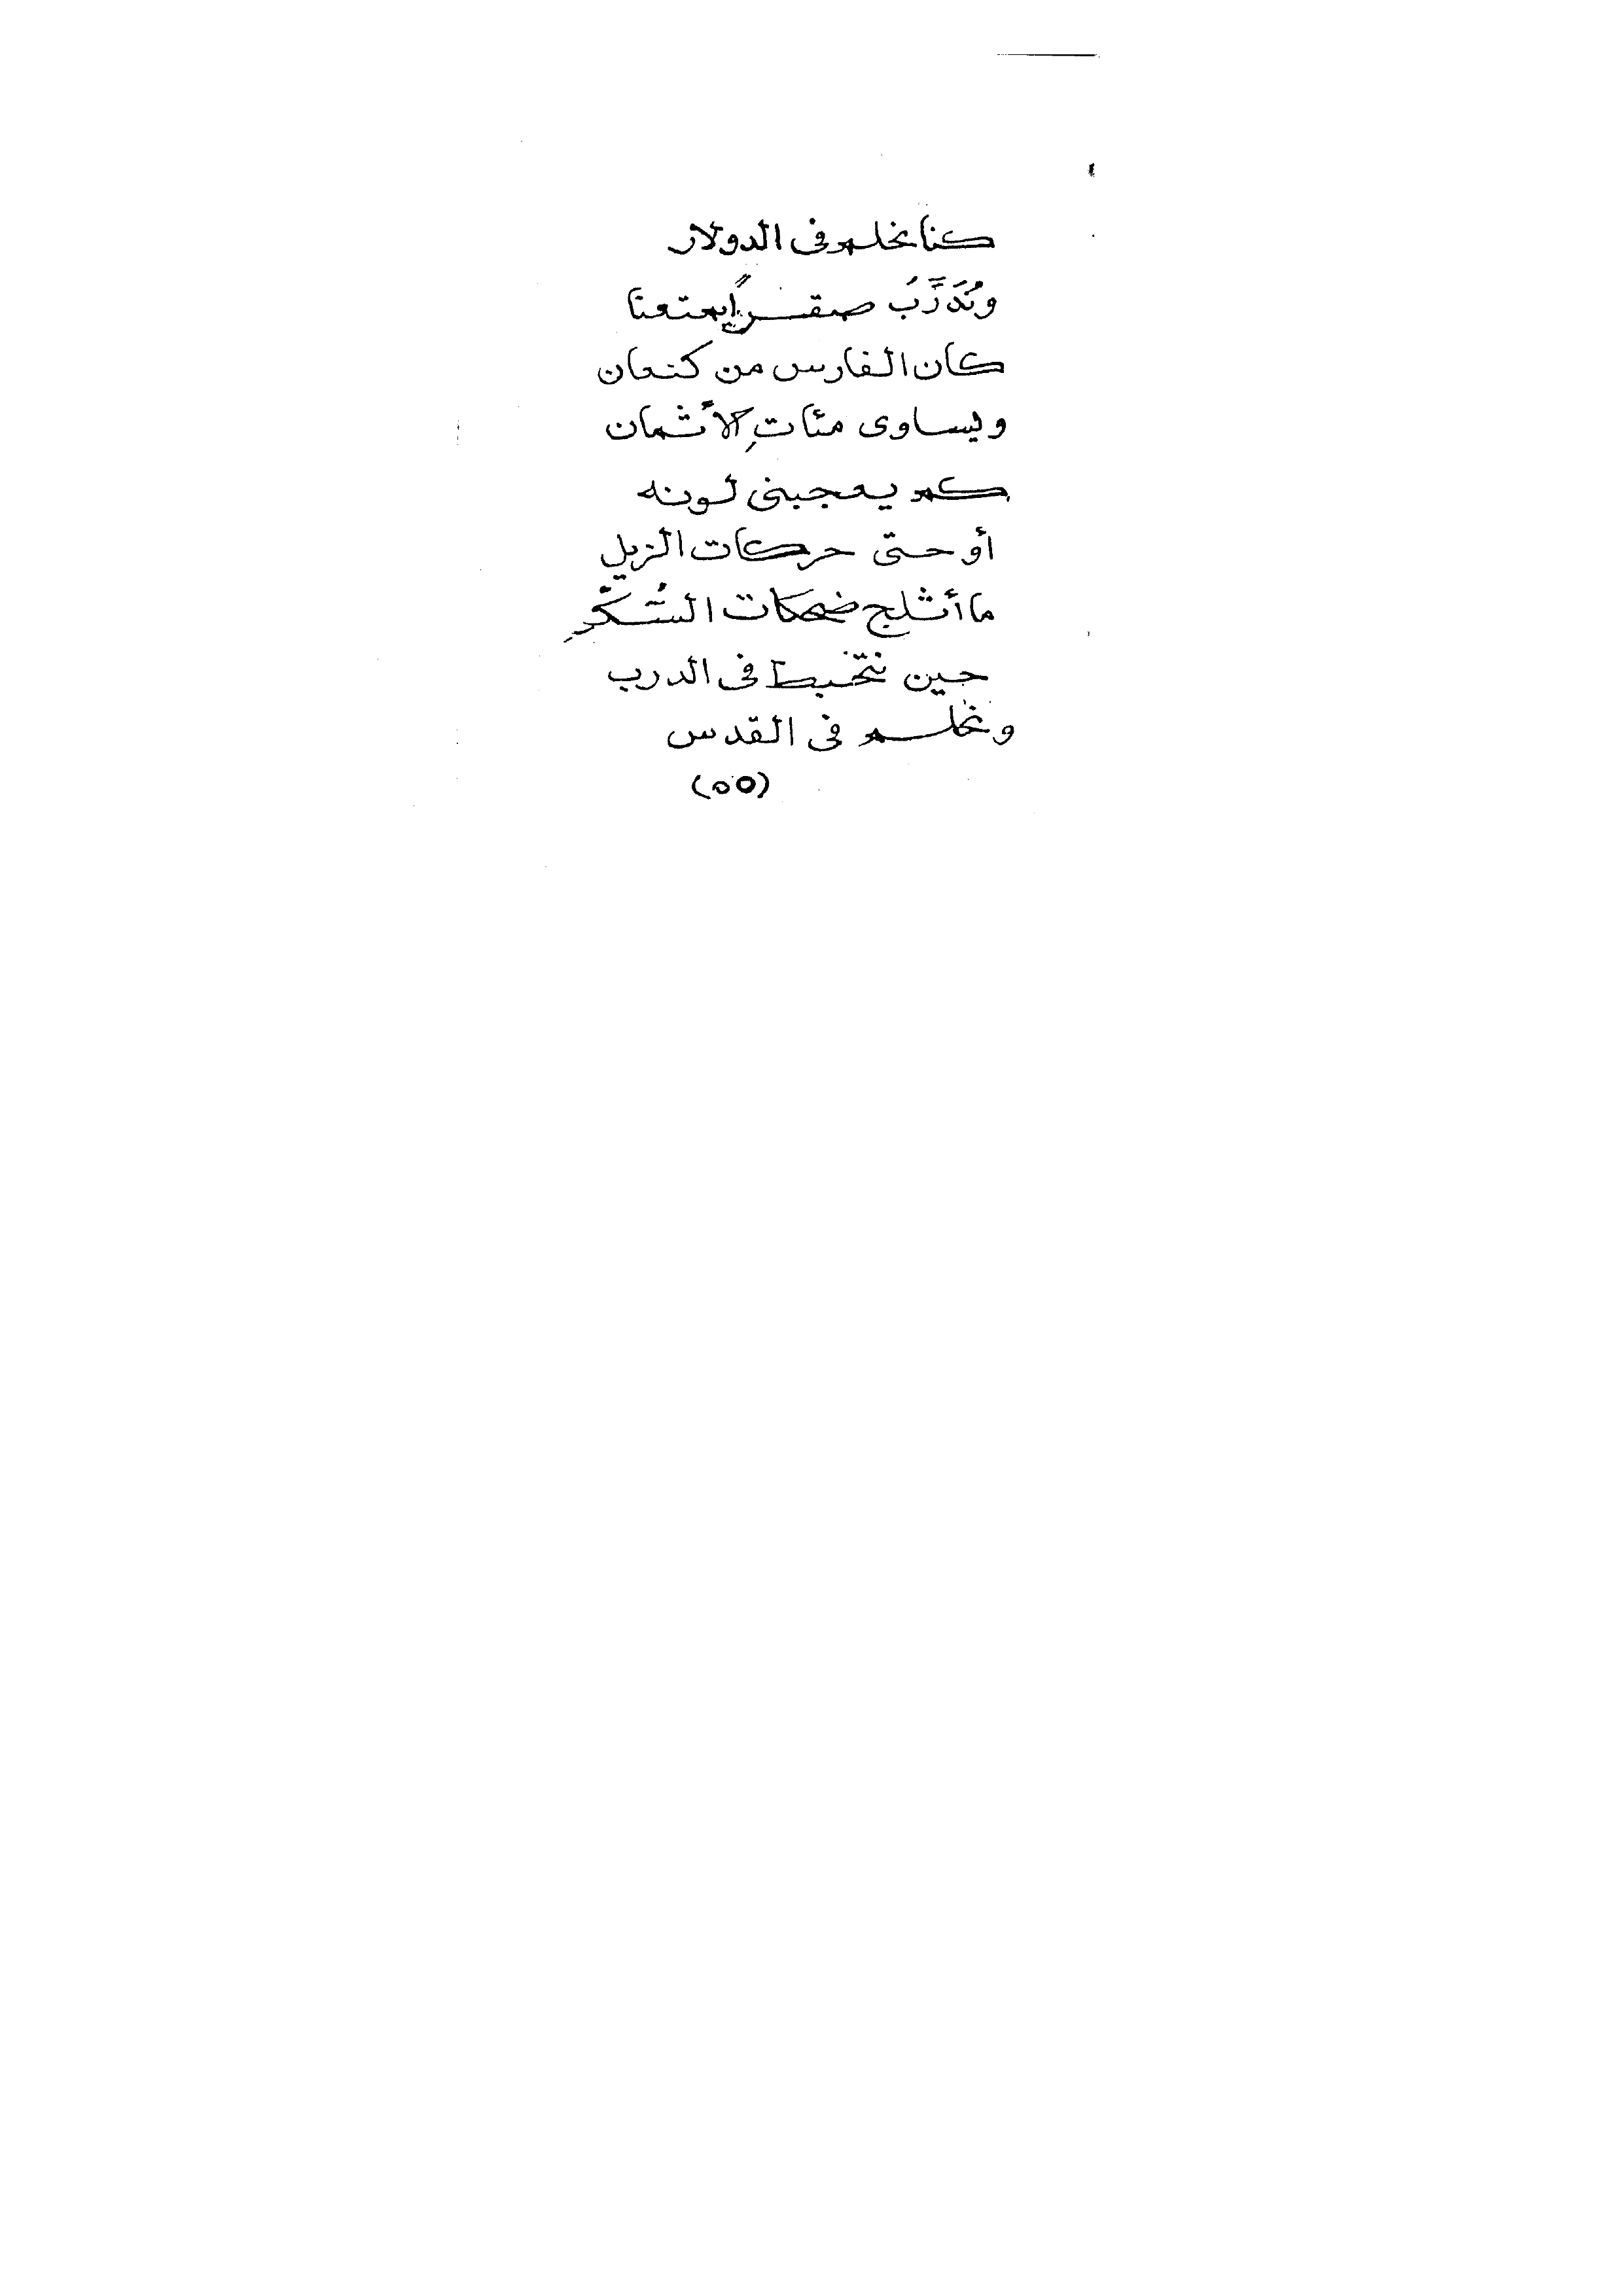 كنا نحلم فى الدولار
ونُدَرَّبُ صقراً يمتعنا
كان الفارس من كنعان
ويساوى مئاتِ الأثمان
كم يعجبنى لونه
أو حتى حركات الزيل
ما أثلج ضحكات السُّكَّرِ
حين نتخبط فى الدرب
ونحلم فى القدس
(٥٥)